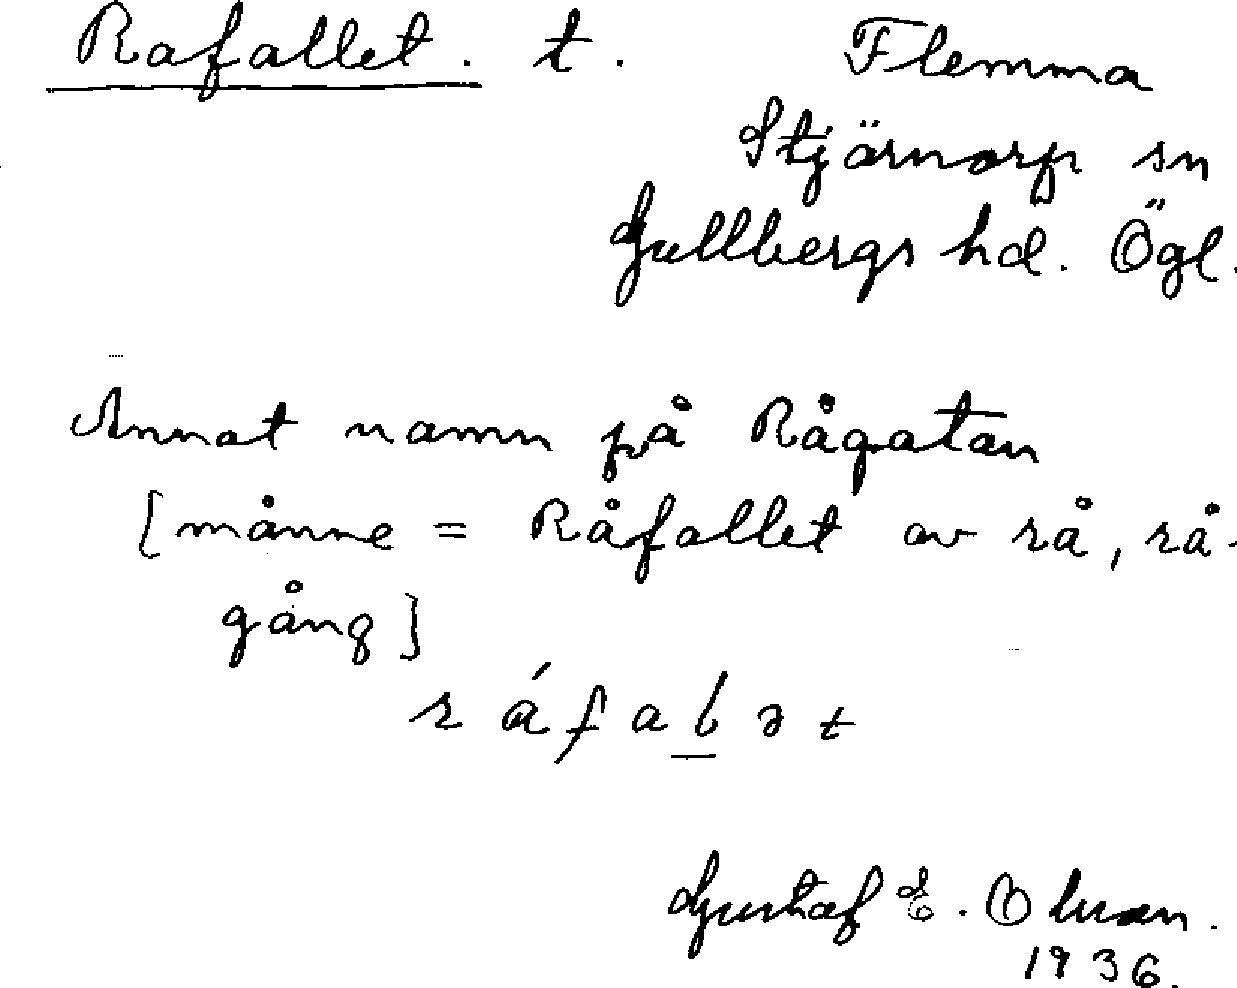 Rafallet. t. Flemma
Stjärnorp sn
Gullbergs hd. Ögl.
Annat namn på Rågatan
[månne = Råfallet av rå, rå-
gång]
r á f a l ə t
Gustaf E. Olsson.
1936.